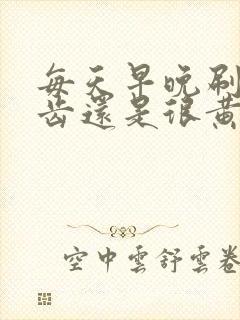 每天早晚刷
齿還是很黄
空中雲舒雲卷